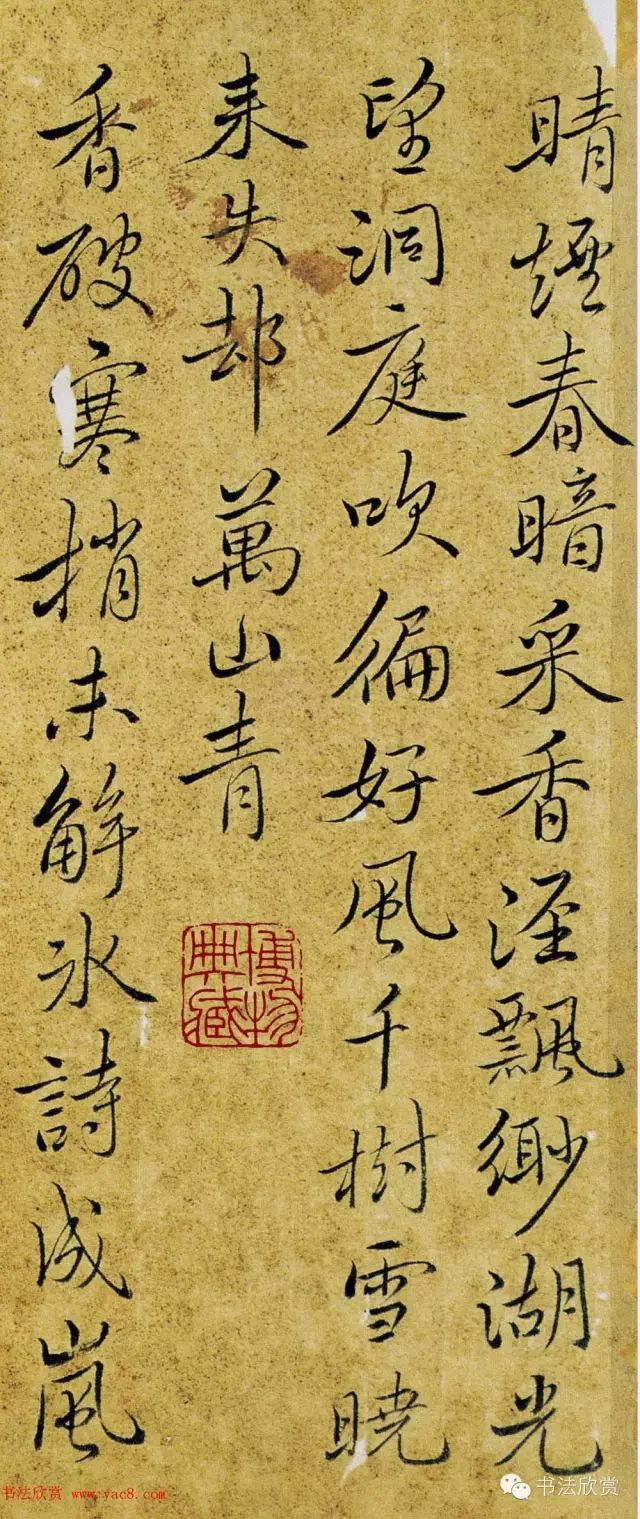 晴煙春暗采香涇飄緲湖光
望洞庭吹徧好風千樹雪曉
来失却萬山青
博物典藏
香破寒梢未解冰詩成嵐
书法欣赏 www.yac8.com
书法欣赏